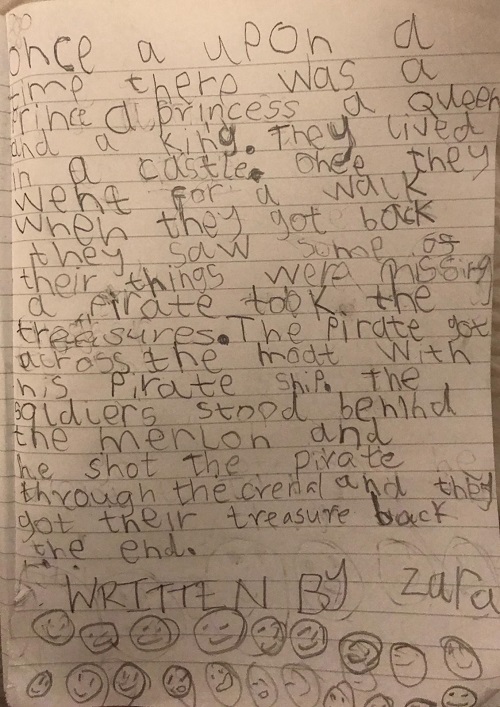 once a upon a
time there was a
Prince a princess a Queen
and a king. They lived
in a castle. once they
went for a walk
when they got back
they saw some of
their things were missing
a pirate took the
treasures. The Pirate got
across the moat with
his Pirate ship. the
soldiers stood behind
the merlon and
he shot the pirate
through the crenal and they
got their treasure back
the end.
WRITTEN BY zara